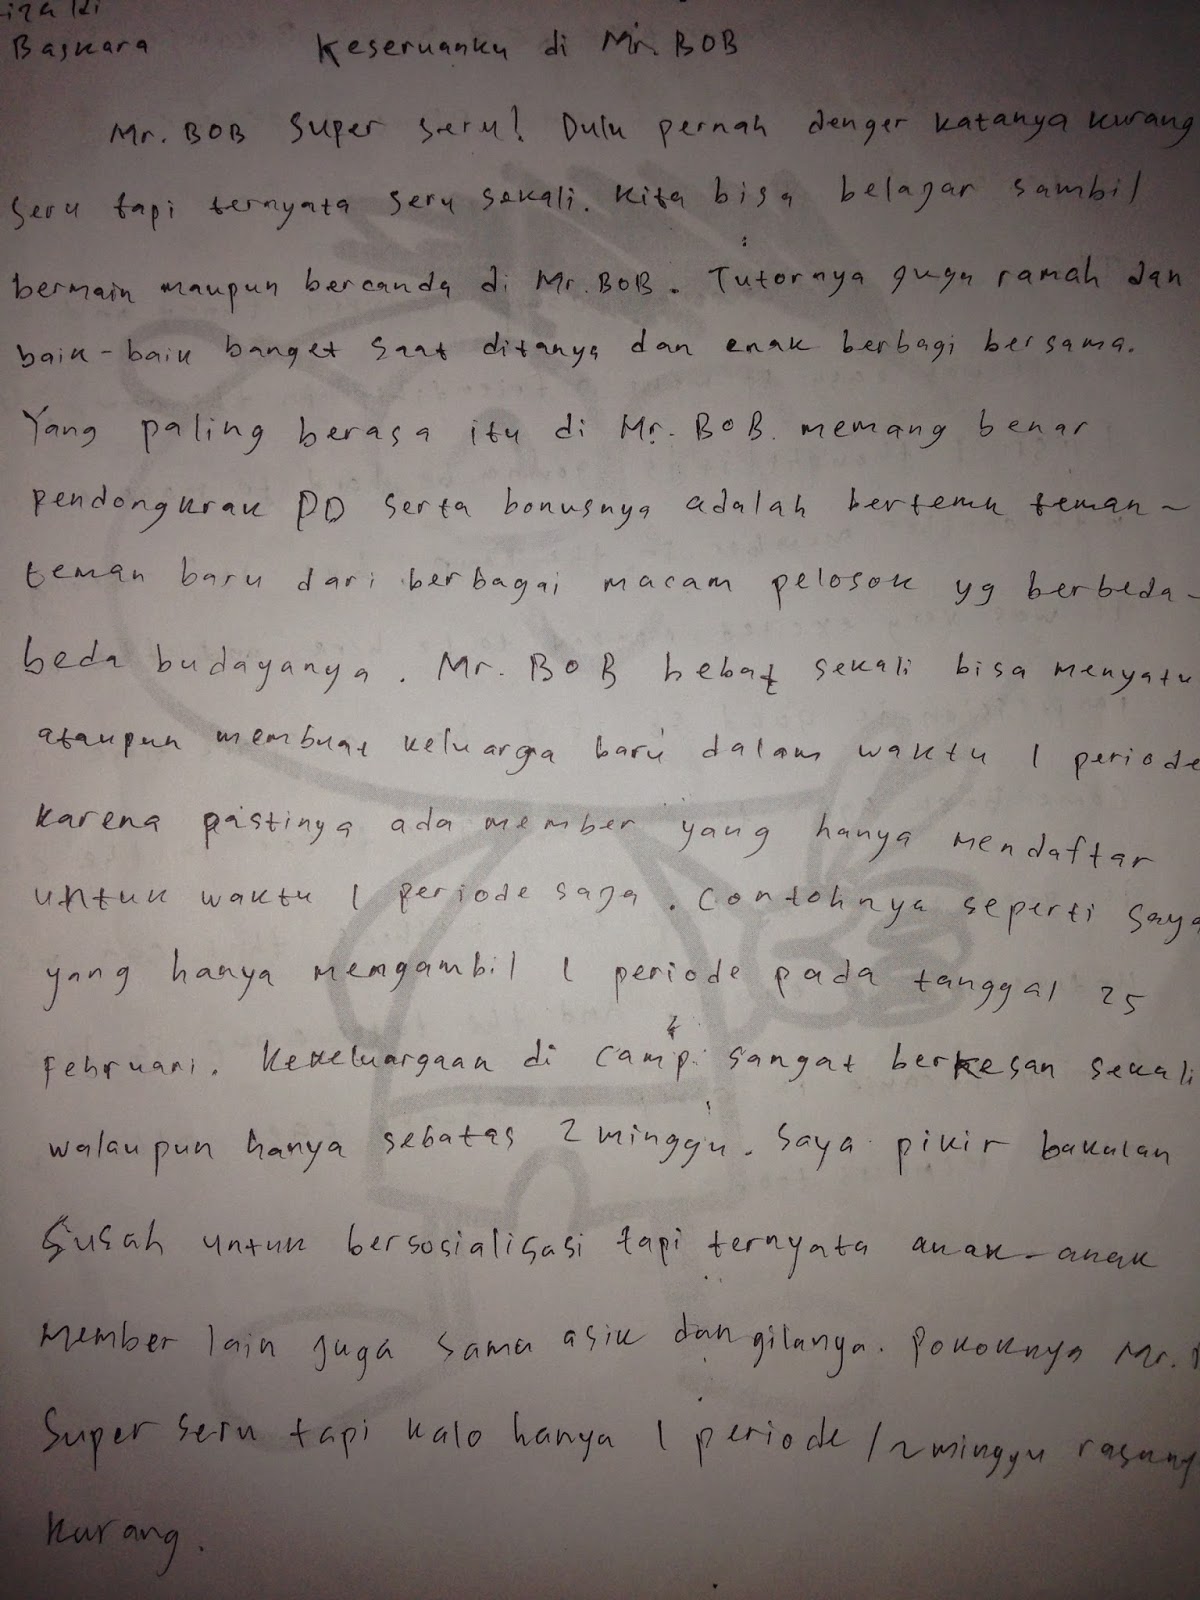 Baskara
Keseruanku di Mr. BOB
Mr. BOB super seru! Dulu pernah denger katanya kurang
seru tapi ternyata seru sekali. Kita bisa belajar sambil
bermain maupun bercanda di Mr. BOB. Tutornya juga ramah dan
baik-baik banget saat ditanya dan enak berbagi bersama.
Yang paling berasa itu di Mr. BOB. memang benar
pendongkrak PD serta bonusnya adalah bertemu teman-
teman baru dari berbagai macam pelosok yg berbeda-
beda budayanya. Mr. BOB hebat sekali bisa menyatu
ataupun membuat keluarga baru dalam waktu 1 periode
karena pastinya ada member yang hanya mendaftar
untuk waktu 1 periode saja. Contohnya seperti saya
yang hanya mengambil 1 periode pada tanggal 25
Februari. Kekeluargaan di camp sangat berkesan sekali
walaupun hanya sebatas 2 minggu. Saya pikir bakalan
susah untuk bersosialisasi tapi ternyata anak-anak
member lain juga sama asik dan gilanya. Pokoknya Mr.
Super seru tapi kalo hanya 1 periode/2 minggu rasany
kurang.